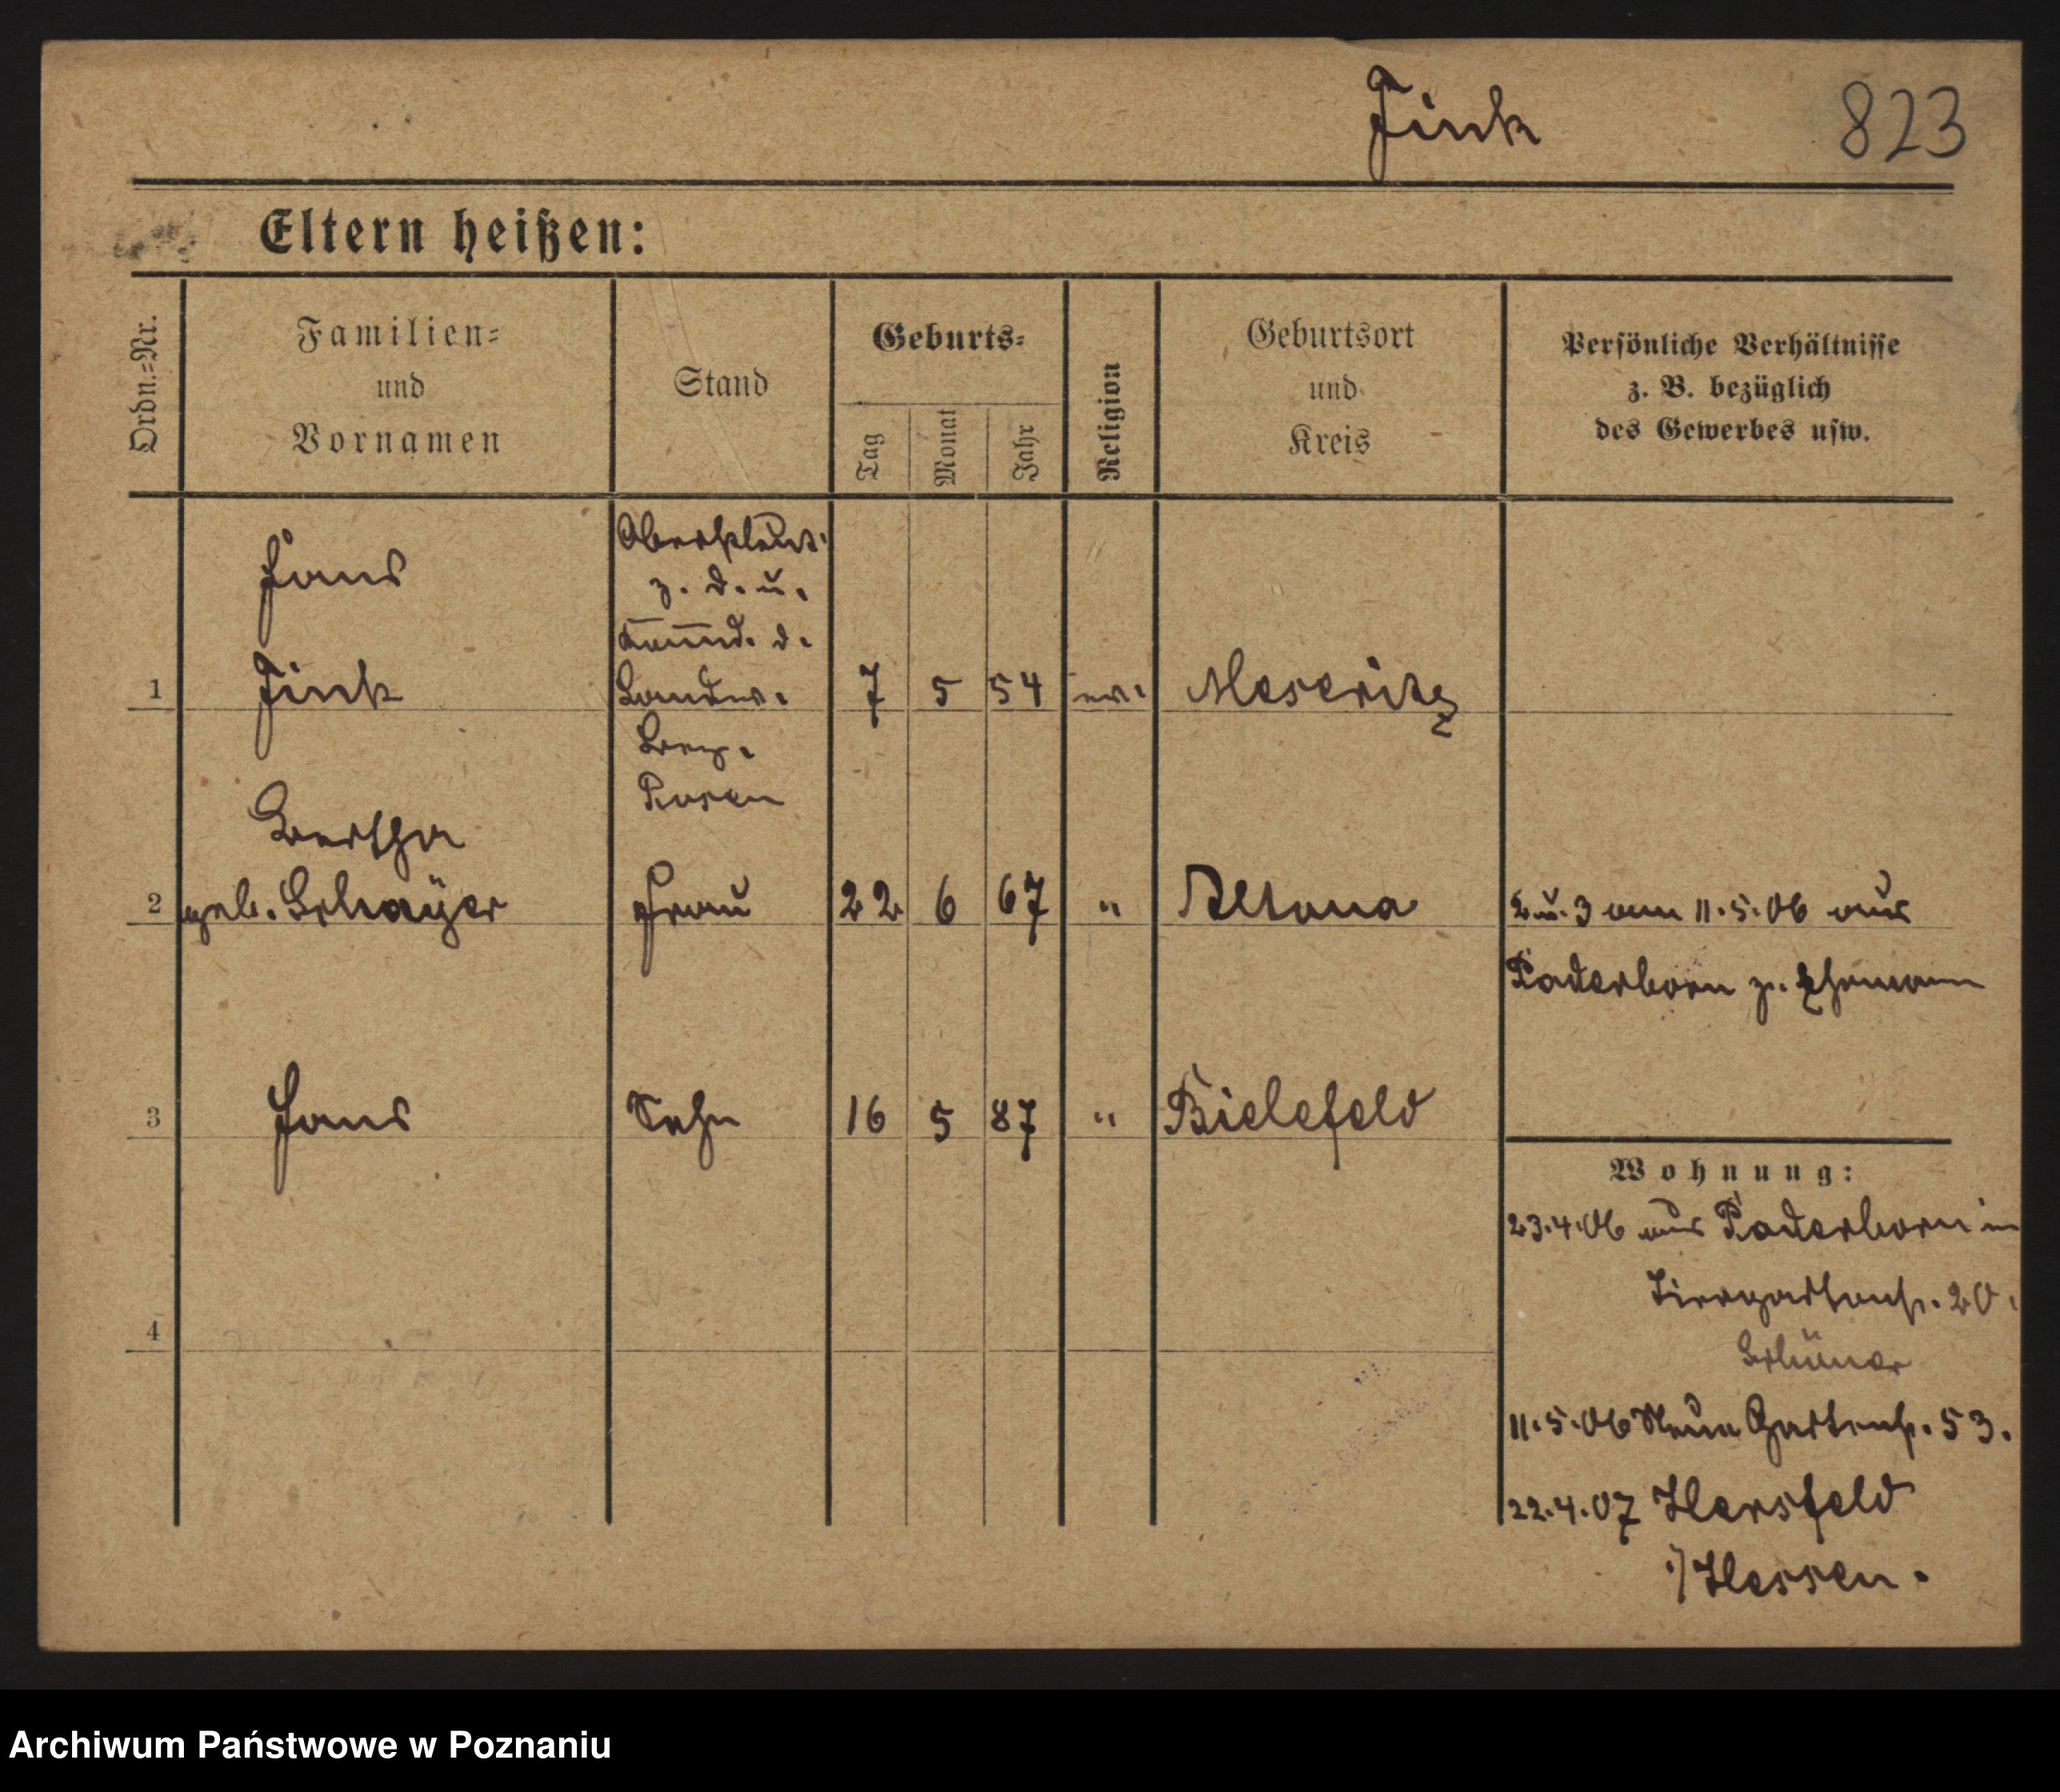 Fink 823
Eltern heißen:
Ordn.=Nr.
Familien=
und
Vornamen
Stand
Geburts=
Tag
Monat
Jahr
Religion
Geburtsort
und
Kreis
Persönliche Verhältnisse
z. B. bezüglich
des Gewerbes usw.
Hans
Oberstleut.
z. D. u.
Kommd. d.
1 Fink Landw. 7 5 54 ev. Meseritz
Bez.
Posen
Bertha
2 geb. Schayer Frau 22 6 67 " Altona 2 u. 3 am 11.5.06 aus
Paderborn z. Ehemann
3 Hans Sohn 16 5 87 " Bielefeld
Wohnung:
23.4.06 aus Paderborn in
Tiergartenstr. 20.
4
11.5.06 Neue Gartenstr. 53.
22.4.07 Hersfeld
i/Hessen.
Archiwum Państwowe w Poznaniu